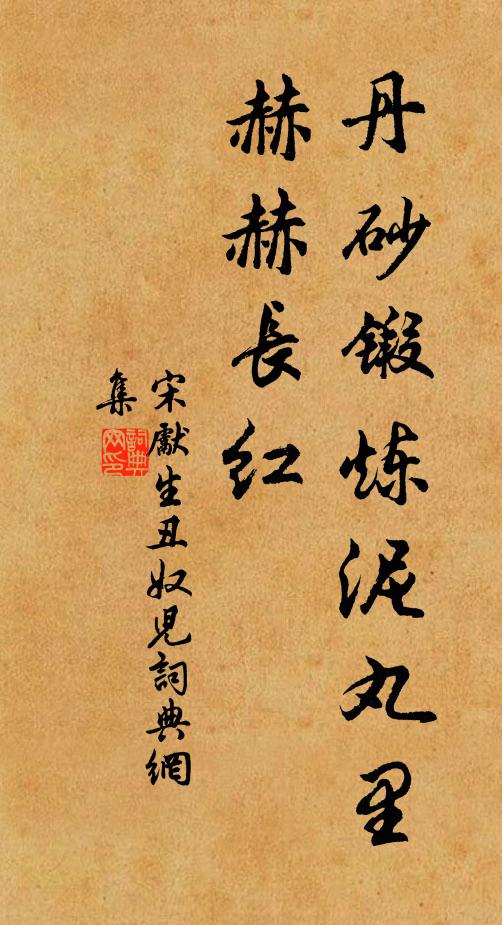 丹砂鍛炼泥丸里
赫赫長红
宋獻生丑奴児詞典網
集
詞典
网印